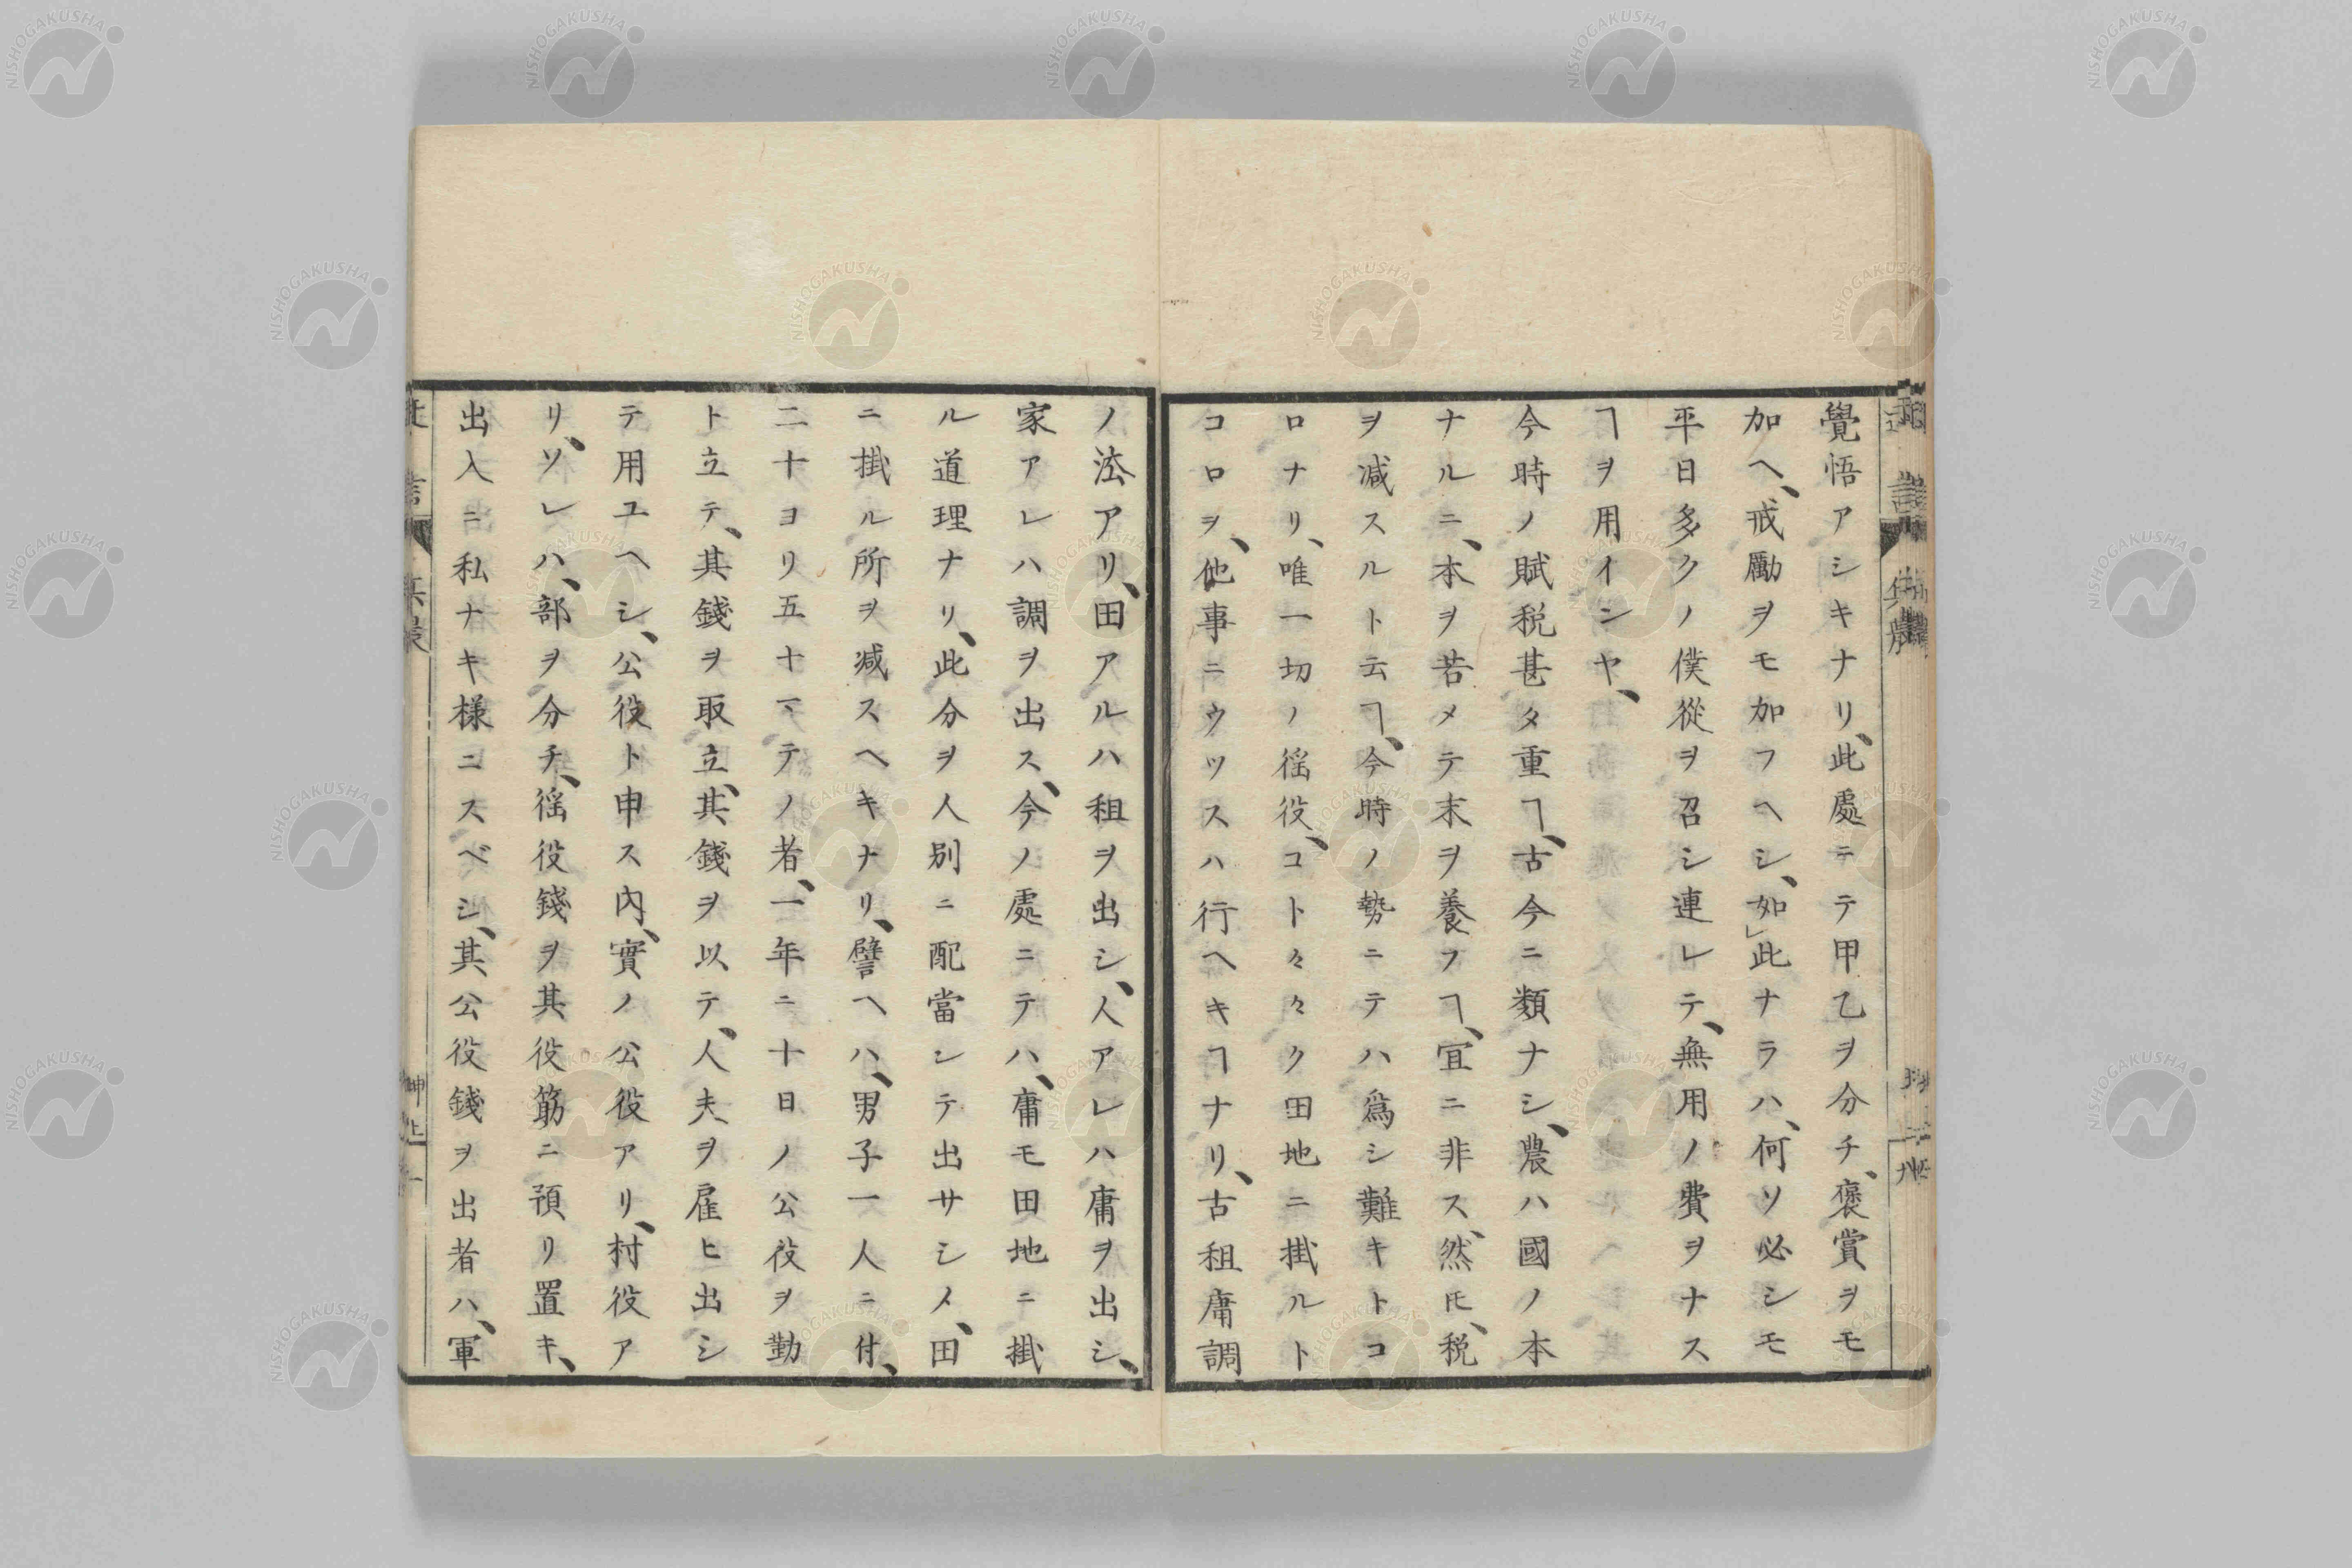 覺悟アシキナリ、此處ニテ甲乙ヲ分チ、褒賞ヲモ
加ヘ、戒勵ヲモ加フヘシ、如㆑此ナラハ、何ソ必シモ
平日多クノ僕從ヲ召シ連レテ、無用ノ費ヲナス
ヿヲ用インヤ、
今時ノ賦税甚タ重ヿ、古今ニ類ナシ、農ハ國ノ本
ナルニ、本ヲ苦メテ末ヲ養フヿ、宜ニ非ス、然𪜈、税
ヲ減スルト云ヿ、今時ノ勢ニテハ爲シ難キトコ
ロナリ、唯一切ノ徭役、コト々々ク田地ニ掛ルト
コロヲ、他事ニウツスハ行ヘキヿナリ、古租庸調
ノ法アリ、田アルハ租ヲ出シ、人アレハ庸ヲ出シ、
家アレハ調ヲ出ス、今ノ處ニテハ、庸モ田地ニ掛
ル道理ナリ、此分ヲ人別ニ配當シテ出サシメ、田
ニ掛ル所ヲ減スヘキナリ、譬ヘハ、男子一人ニ付、
二十ヨリ五十マテノ者、一年ニ十日ノ公役ヲ勤
ト立テ、其錢ヲ取立、其錢ヲ以テ、人夫ヲ雇ヒ出シ
テ用ユヘシ、公役ト申ス內、實ノ公役アリ、村役ア
リ、ソレハ、部ヲ分チ、徭役錢ヲ其役筋ニ預リ置キ、
出入ニ私ナキ樣ニスベシ、其公役錢ヲ出者ハ、軍